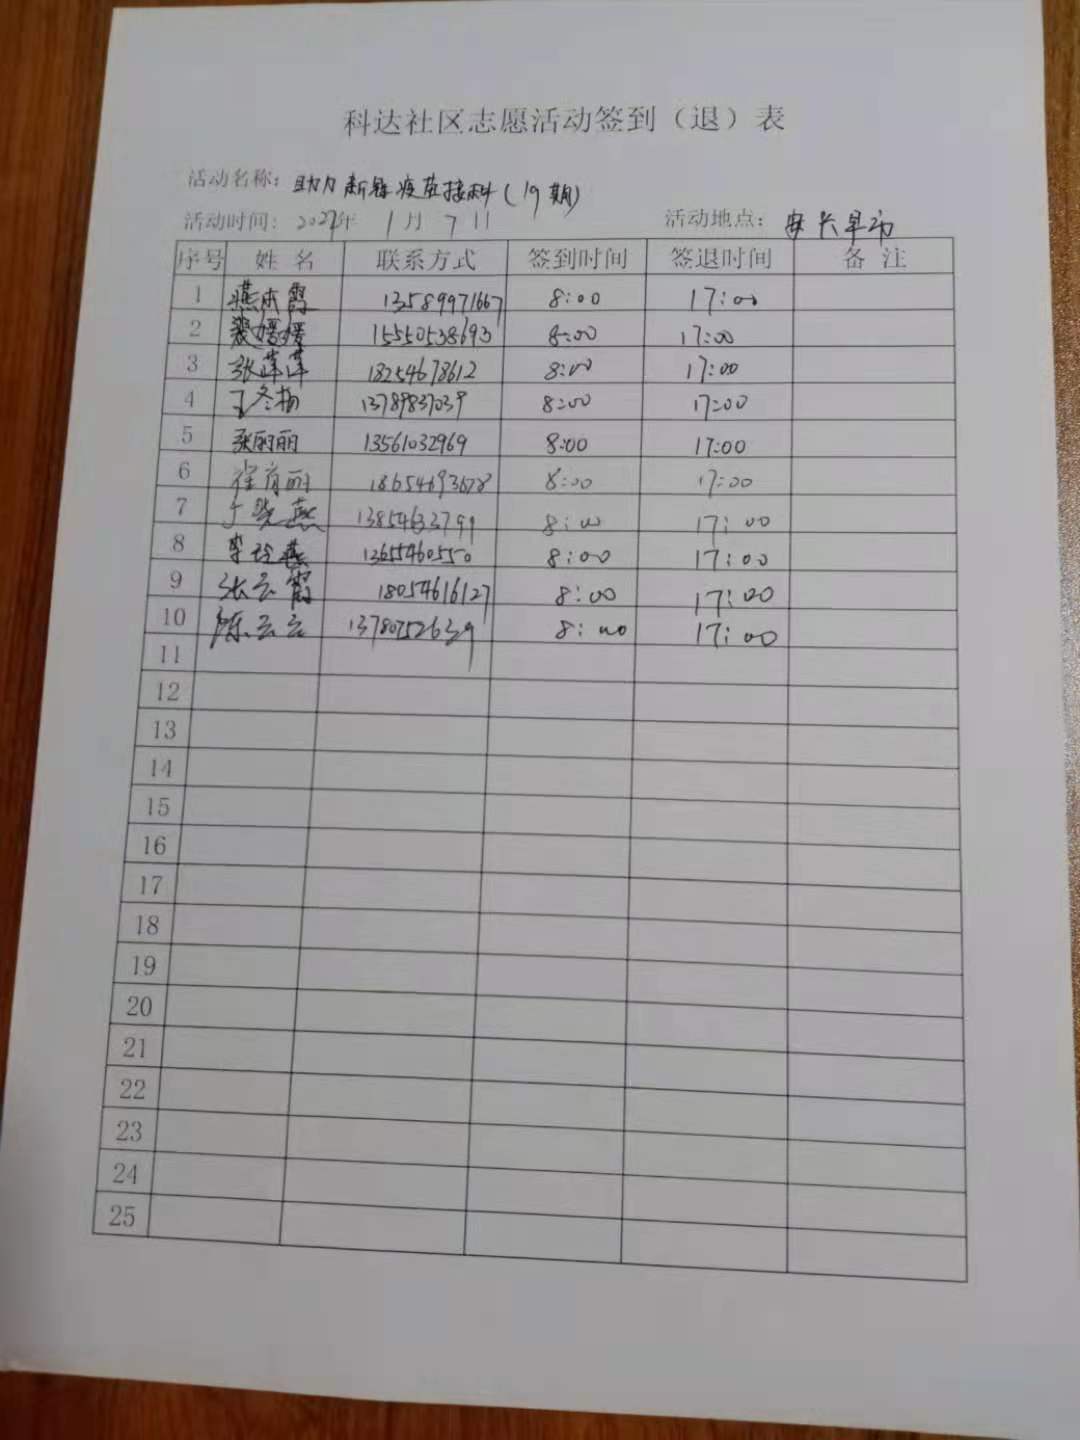 科达社区志愿活动签到（退）表
活动名称：助力新冠疫苗接种（19期）
活动时间：年 1月 7日 活动地点：
序号 姓名 联系方式 签到时间 签退时间 备注
1 燕霞 13589971667 8:00 17:00
2 媛媛 15550538693 8:00 17:00
3 张萍萍 18254678612 8:00 17:00
4 王冬梅 13789837039 8:00 17:00
5 张丽丽 13561032969 8:00 17:00
6 8:00 17:00
7 于晓燕 13854633799 8:00 17:00
8 李燕 13655460550 8:00 17:00
9 张云霞 18054616127 8:00 17:00
10 陈云云 13780752639 8:00 17:00
11
12
13
14
15
16
17
18
19
20
21
22
23
24
25